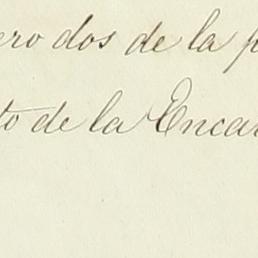 ero dos de la p
to de la Encar